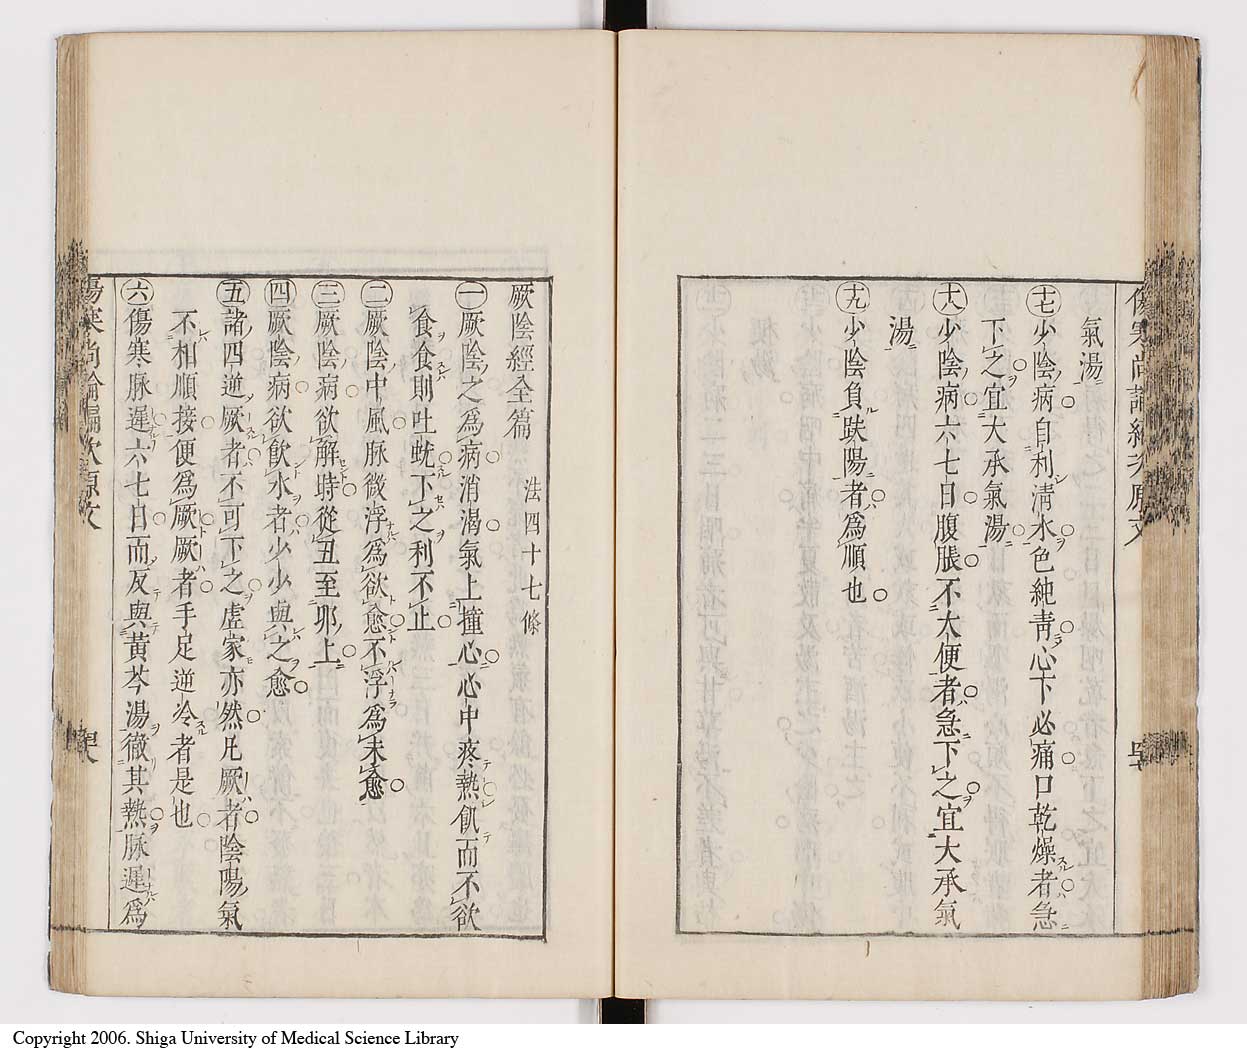 氣湯
㊆少陰病自利清水色純青心下必痛口乾燥者急
下之宜大承氣湯
十八少陰病六七日腹脹不大便者急下之宜大承氣
湯
十九少陰負趺陽者為順也
厥陰經全篇 法四十七條
㊀厥陰之為病消渴氣上撞心心中疼熱飢而不欲
食食則吐蚘下之利不止
㊁厥陰中風脉微浮為欲愈不浮為未愈
㊂厥陰病欲解時從丑至卯上
㊃厥陰病欲飲水者少少與之愈
㊄諸四逆厥者不可下之虛家亦然凡厥者陰陽氣
不相順接便為厥厥者手足逆冷者是也
㊅傷寒脉遲六七日而反與黃芩湯徹其熱脉遲為
Copyright 2006. Shiga University of Medical Science Library